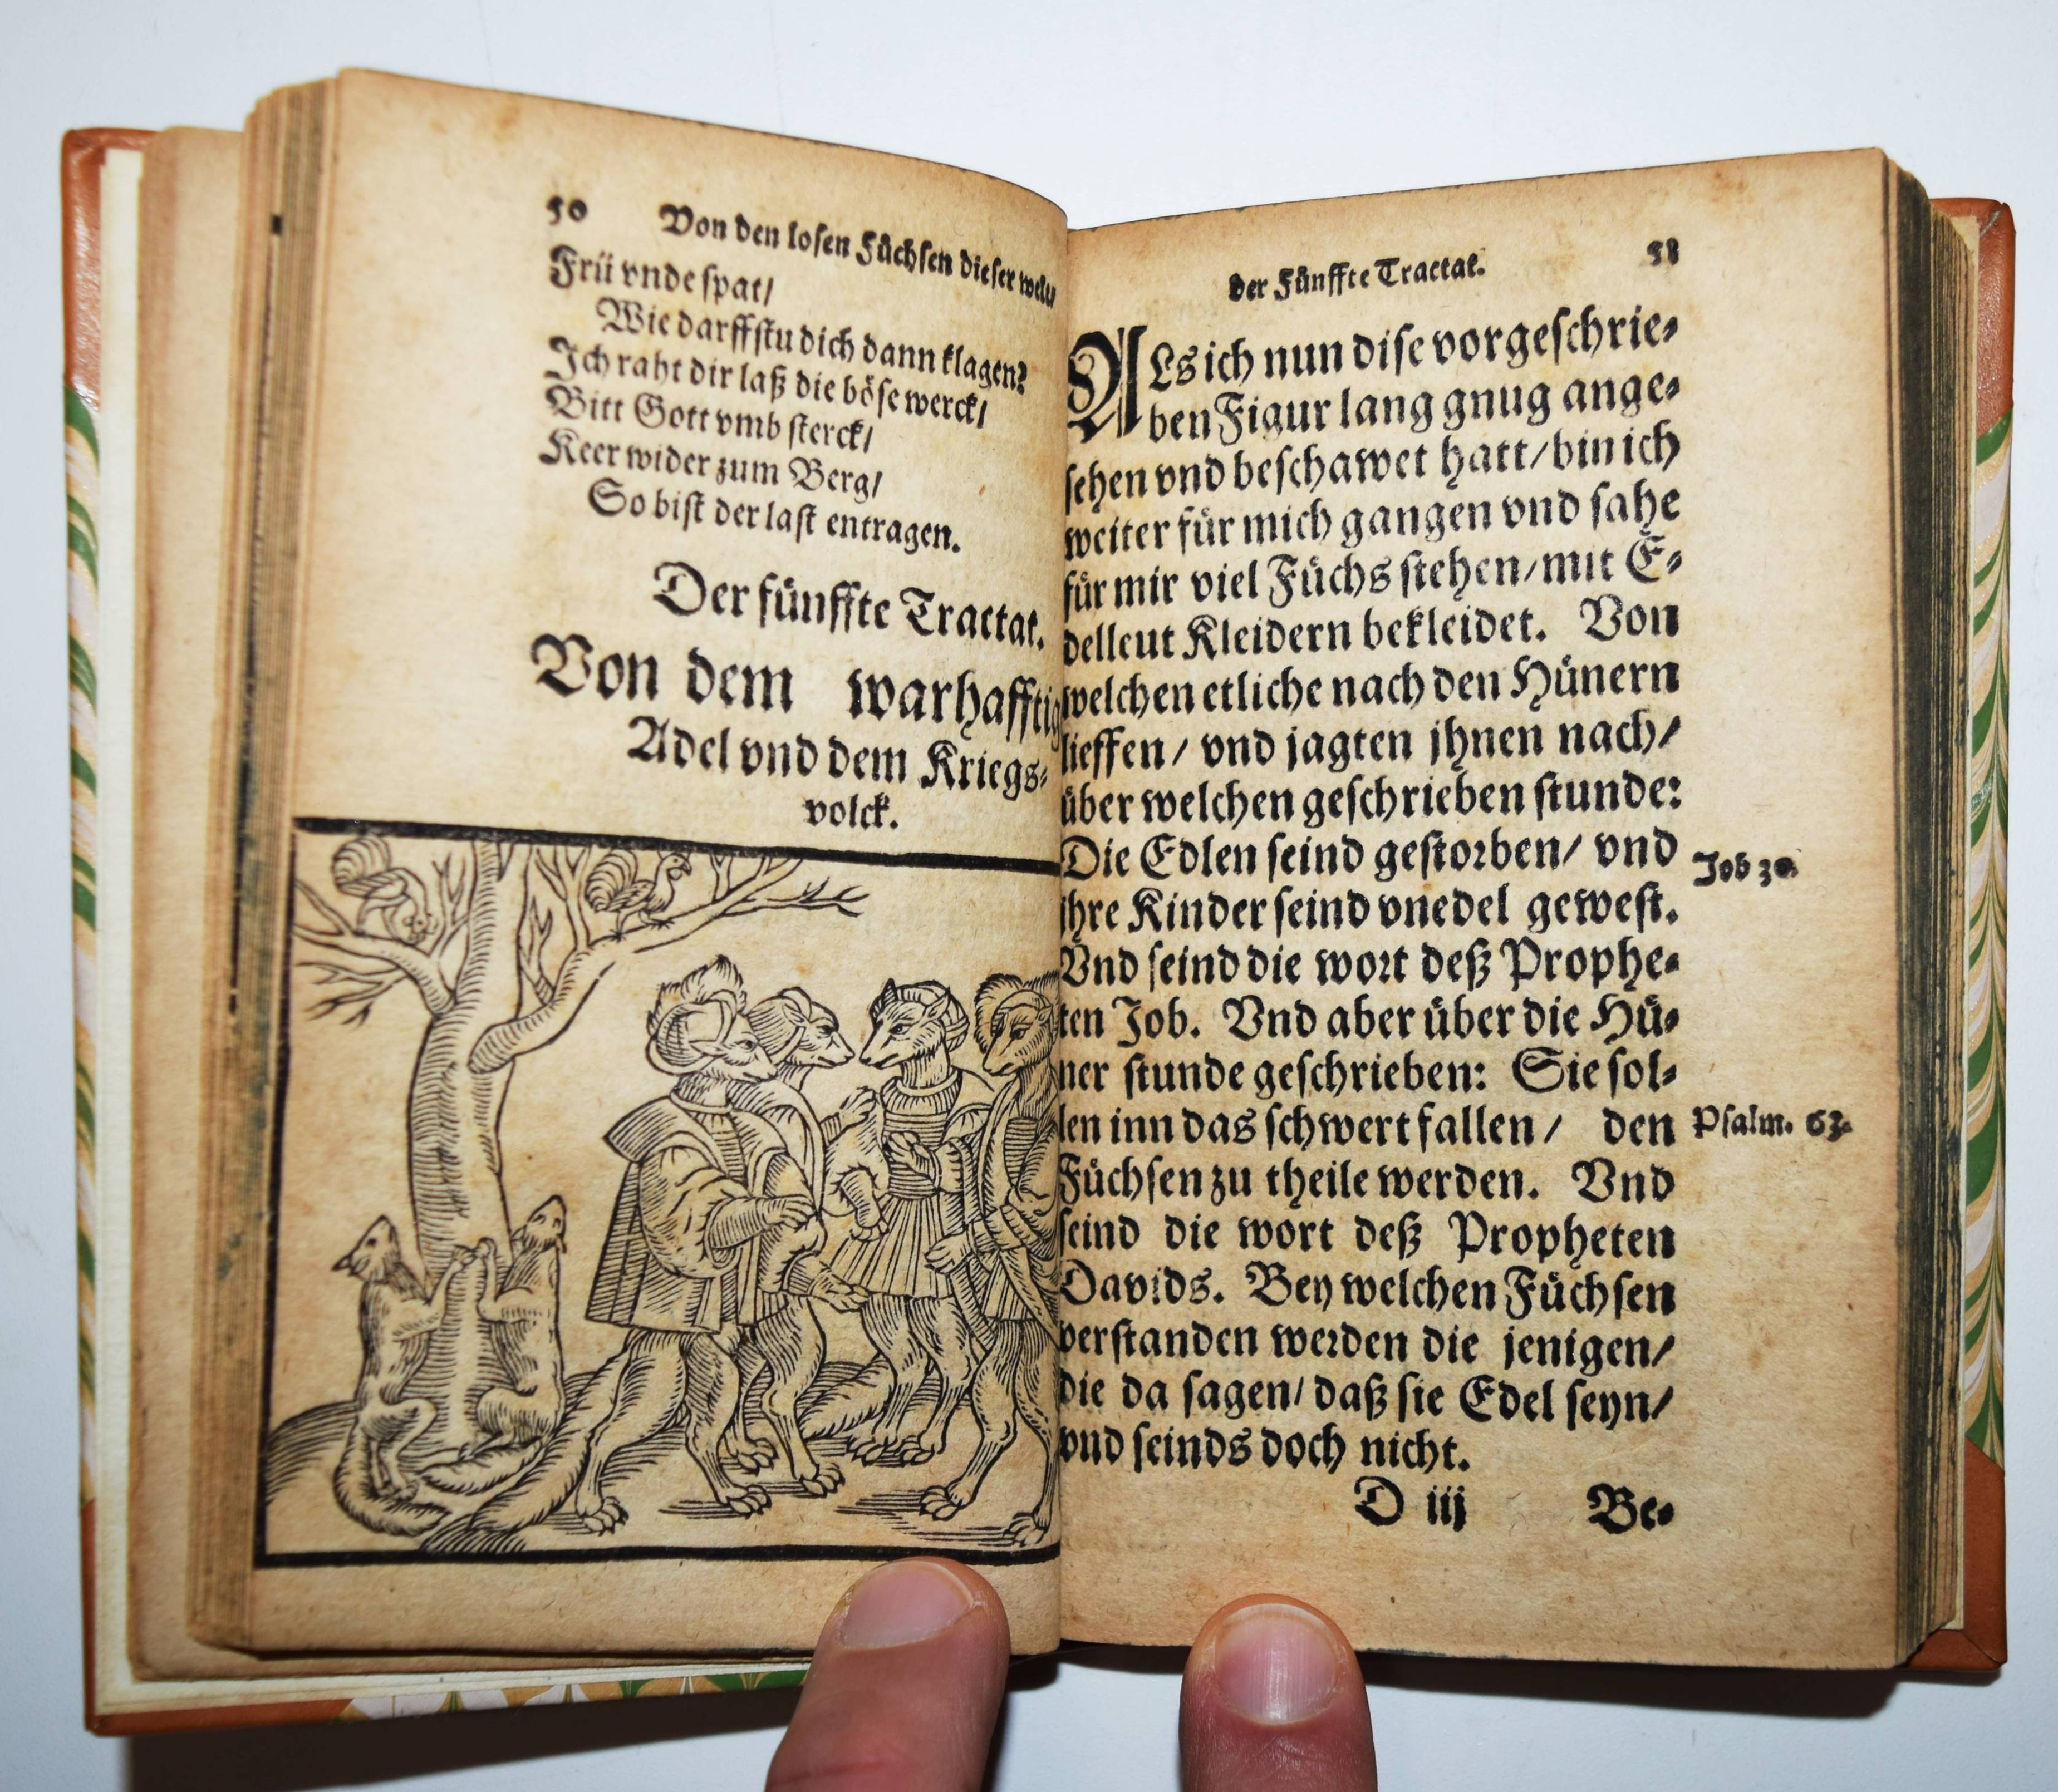 50 Von den losen Füchsen dieser welt
Frü vnde spat/
Wie darffstu dich dann klagen?
Ich raht dir laß die böse werck/
Bitt Gott vmb sterck/
Keer wider zum Berg/
So bist der last entragen.
Der fünffte Tractat.
Von dem warhafftig
Adel vnd dem Kriegs⸗
volck.
Der Fünffte Tractat. 51
ALs ich nun dise vorgeschrie⸗
ben Figur lang gnug ange⸗
sehen vnd beschawet hatt/ bin ich
weiter für mich gangen vnd sahe
für mir viel Füchs stehen/ mit E⸗
delleut Kleidern bekleidet. Von
welchen etliche nach den Hünern
lieffen/ vnd jagten jhnen nach/
über welchen geschrieben stunde:
Die Edlen seind gestorben/ vnd
ihre Kinder seind vnedel gewest.
Job 30.
Vnd seind die wort deß Prophe⸗
ten Job. Vnd aber über die Hü⸗
ner stunde geschrieben: Sie sol⸗
len inn das schwert fallen/ den
Psalm. 63.
Füchsen zu theile werden. Vnd
seind die wort deß Propheten
Davids. Bey welchen Füchsen
verstanden werden die jenigen/
die da sagen/ daß sie Edel seyn/
vnd seinds doch nicht.
D iij Be⸗